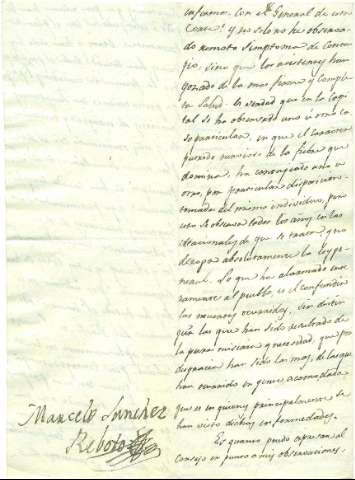 enfermos con el General de esta
Corte; y no solo no he observa-
do remoto symptoma de conta-
gio, sino que los asistentes han
gozado de la mas firme y comple-
ta salud. Es verdad que en la Capi-
tal se ha observado uno ù otro ca-
so particular, en que el caracter
pútrido nervioso de la fiebre que
domina, ha contagiado uno u
otro, por particular disposicion
tomada del mismo individuo, pero
esto se observa todos los años en las
estacionales de que se trata, que
no es absolutamente la ley ge-
neral. Lo que ha alarmado cier-
tamente al pueblo, es el confundir
las muertes ocurridas, sin distin-
guir las que han sido resultado de
la pura miseria y necesidad, que por
desgracia han sido las mas, de las que
han ocurrido en gente acomodada
que es en quienes principalmente se
han visto dichas enfermedades.
Es quanto puedo exponer al
Consejo en punto a mis observaciones.
Marcelo Sanchez
Reboto